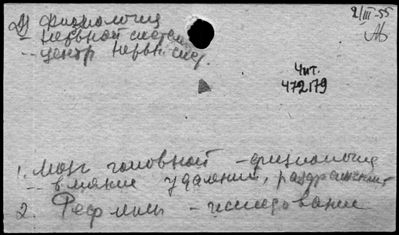 2/III-55
Физиология
– нервной системы
– центр нервн. сист.
Чит.
472179
1. Мозг головной – физиология
– влияние удаления, раздражения
2. Рефлексы – исследование